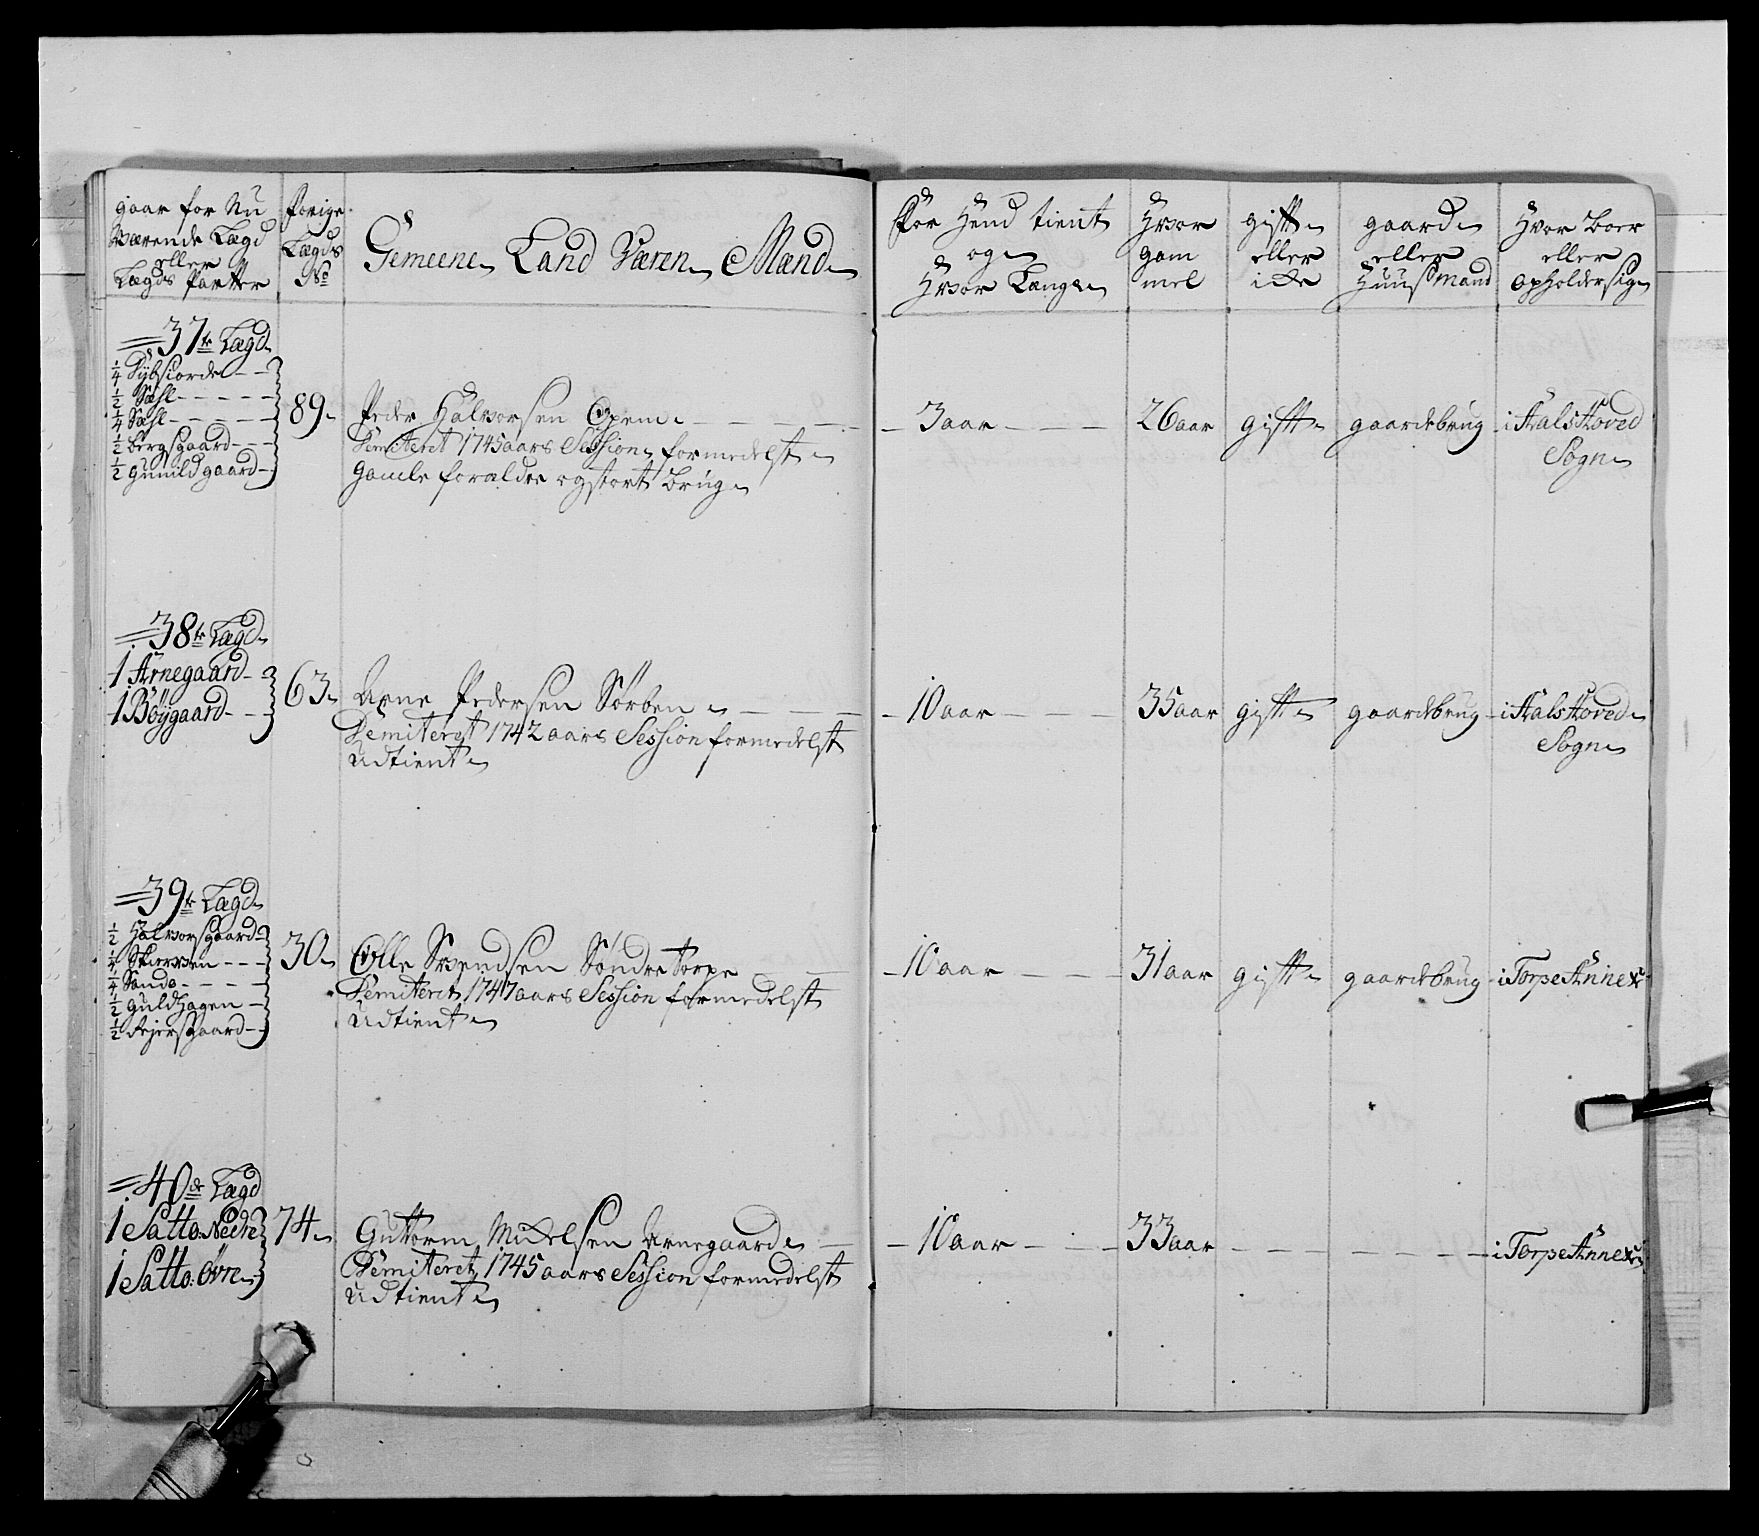 gaar for Nu
Værende Lægd
eller
Lægds Parter
Forige
Lægds
No
Gemeene Land Væren Mænd
For Hend tient
og
Hvor Længe
Hvor
gam
mel
gift
eller
icke
gaard
eller
Huusmand
Hvor boer
eller
opholdersig
37te Lægd
1/4 Dybsiorde
1/2 Sæhl
1/4 Sæhl
1/2 bergsgaard
1/2 gunildgaard
89
Peder Halvorsen Opem
Demiteret 1745 aars Session formedelst
gamle foraldre og stort brug
3 aar
26 aar
gift
gaardebrug
i Aals Hoved
Sogn
38te Lægd
1 Arnegaard
1 Böygaard
63
Arne Pedersen Sørben
Demiteret 1742 aars Session formedelst
udtient
10 aar
35 aar
gift
gaardebrug
i Aals Hoved
Sogn
39te Lægd
1/2 Halvorsgaard
1/4 Skierven
1/4 Sando
1/2 guldhagen
1/2 Rejersgaard
30
Olle Svendsen Søndre Torpe
Demiteret 1747 aars Session formedelst
udtient
10 aar
31 aar
gift
gaardebrug
i Torpe Annex
40de Lægd
1 Satto Nedre
1 Satto Övre
74
Guttorm Mickelsen Arnegaard
Demiteret 1745 aars Session formedelst
udtient
10 aar
33 aar
i Torpe Annex